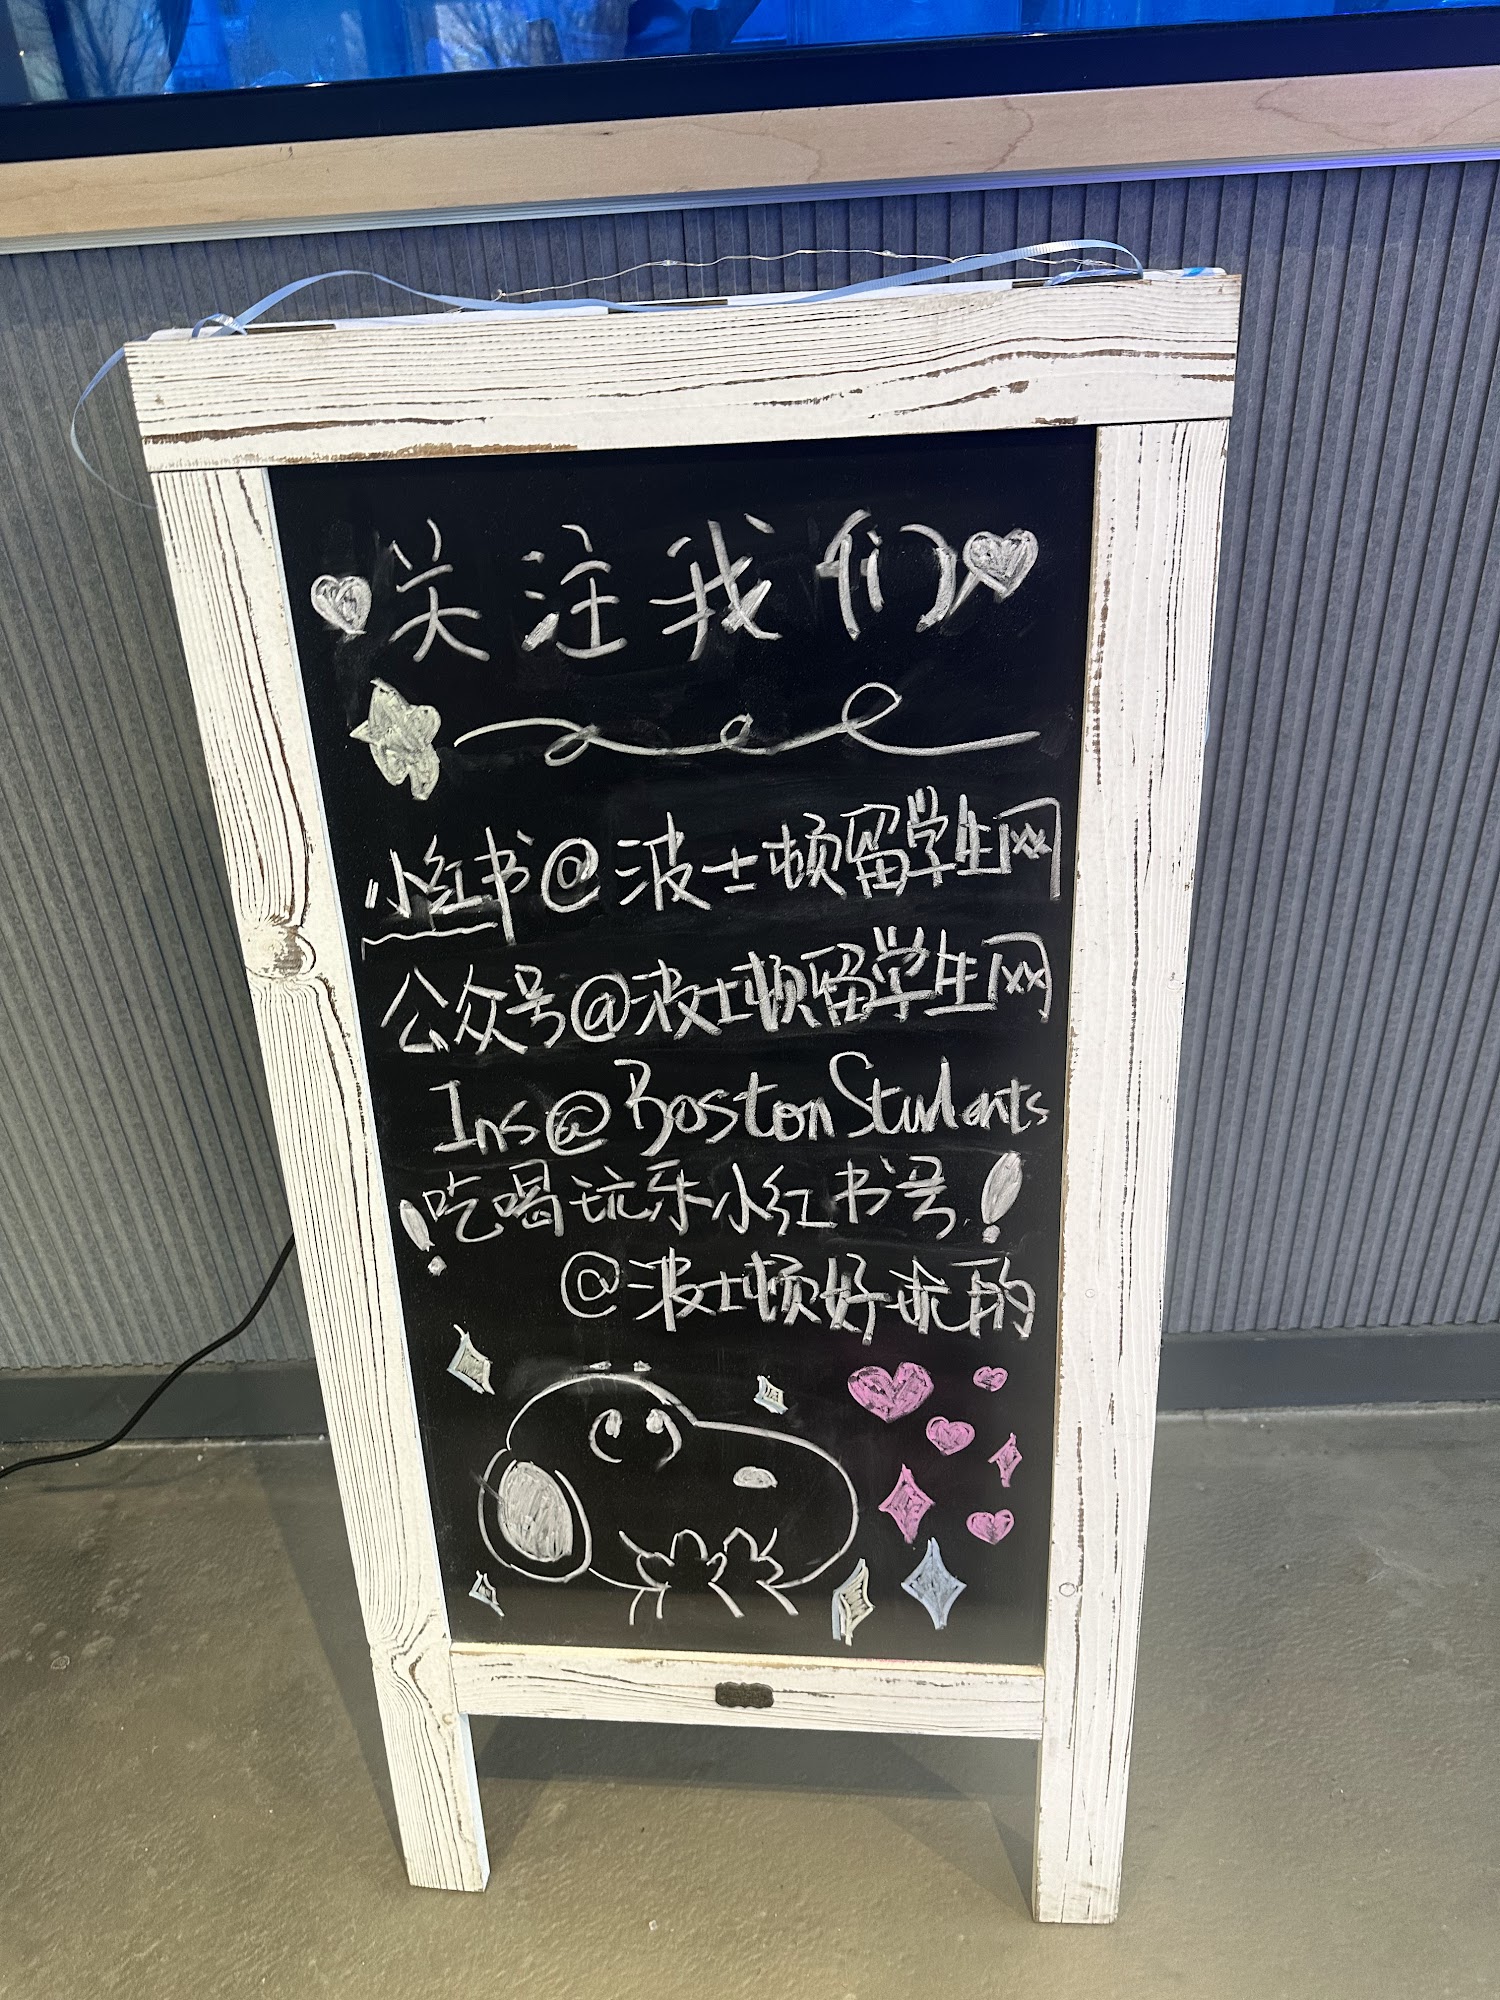 关注我们
小红书@波士顿留学生网
公众号@波士顿留学生网
Ins@BostonStudents
!吃喝玩乐小红书号!
@波士顿好玩的